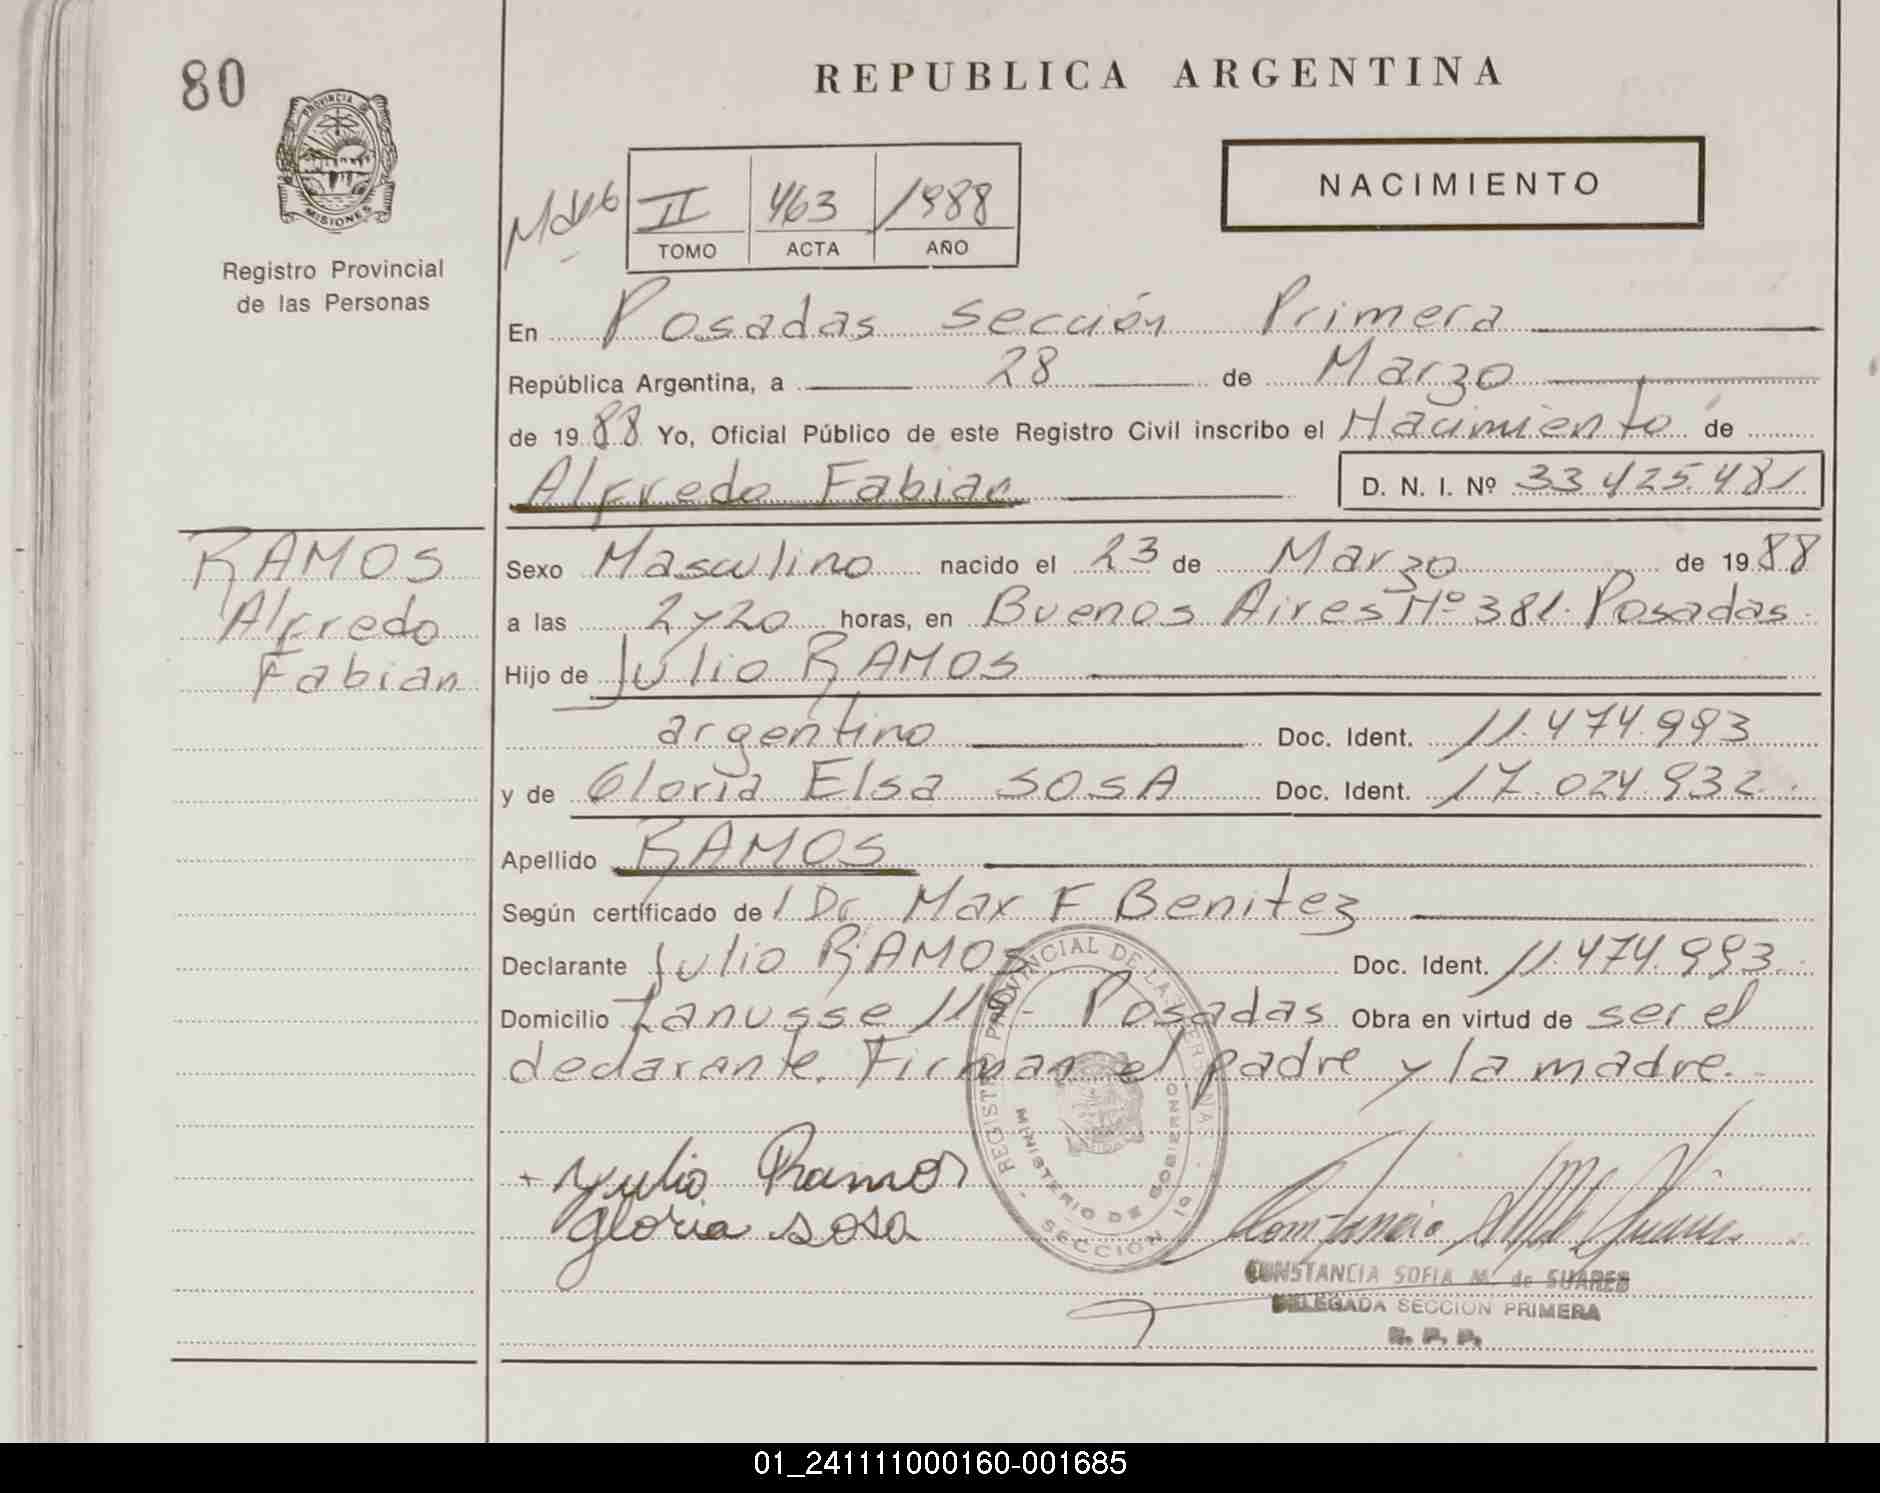 80
REPUBLICA ARGENTINA
PROVINCIA DE
MISIONES
Registro Provincial
de las Personas
II 463 1988
TOMO ACTA AÑO
NACIMIENTO
En Posadas sección Primera
República Argentina, a 28 de Marzo
de 1988 Yo, Oficial Público de este Registro Civil inscribo el Nacimiento de
Alfredo Fabian D. N. I. Nº 33 425.481
RAMOS
Alfredo
Fabian
Sexo Masculino nacido el 23 de Marzo de 1988
a las 2 y 20 horas, en Buenos Aires Nº 381. Posadas.
Hijo de Julio RAMOS
argentino Doc. Ident. 11.474.993
y de Gloria Elsa SOSA Doc. Ident. 17.024.932.
Apellido RAMOS
Según certificado de l Dr Max F Benitez
Declarante Julio RAMOS Doc. Ident. 11.474.993.
Domicilio Lanusse - Posadas Obra en virtud de ser el
declarante. Firman el padre y la madre.
REGISTRO PROVINCIAL DE LAS PERSONAS
MINISTERIO DE GOBIERNO
SECCIÓN 1ª
Julio Ramos
gloria sosa
CONSTANCIA SOFIA M. de SUARES
DELEGADA SECCION PRIMERA
R. P. P.
01_241111000160-001685